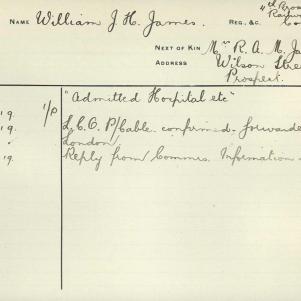 NAME William J. H. James. REG., &C.
NEXT OF KIN Mrs R. A. M. Ja
ADDRESS Wilson Stre
Prospect.
I/P "Admitted Hospital etc"
19. L.C.O. P/Cable confirmed. Forwarde
" London
19. Reply from Commrs. Information